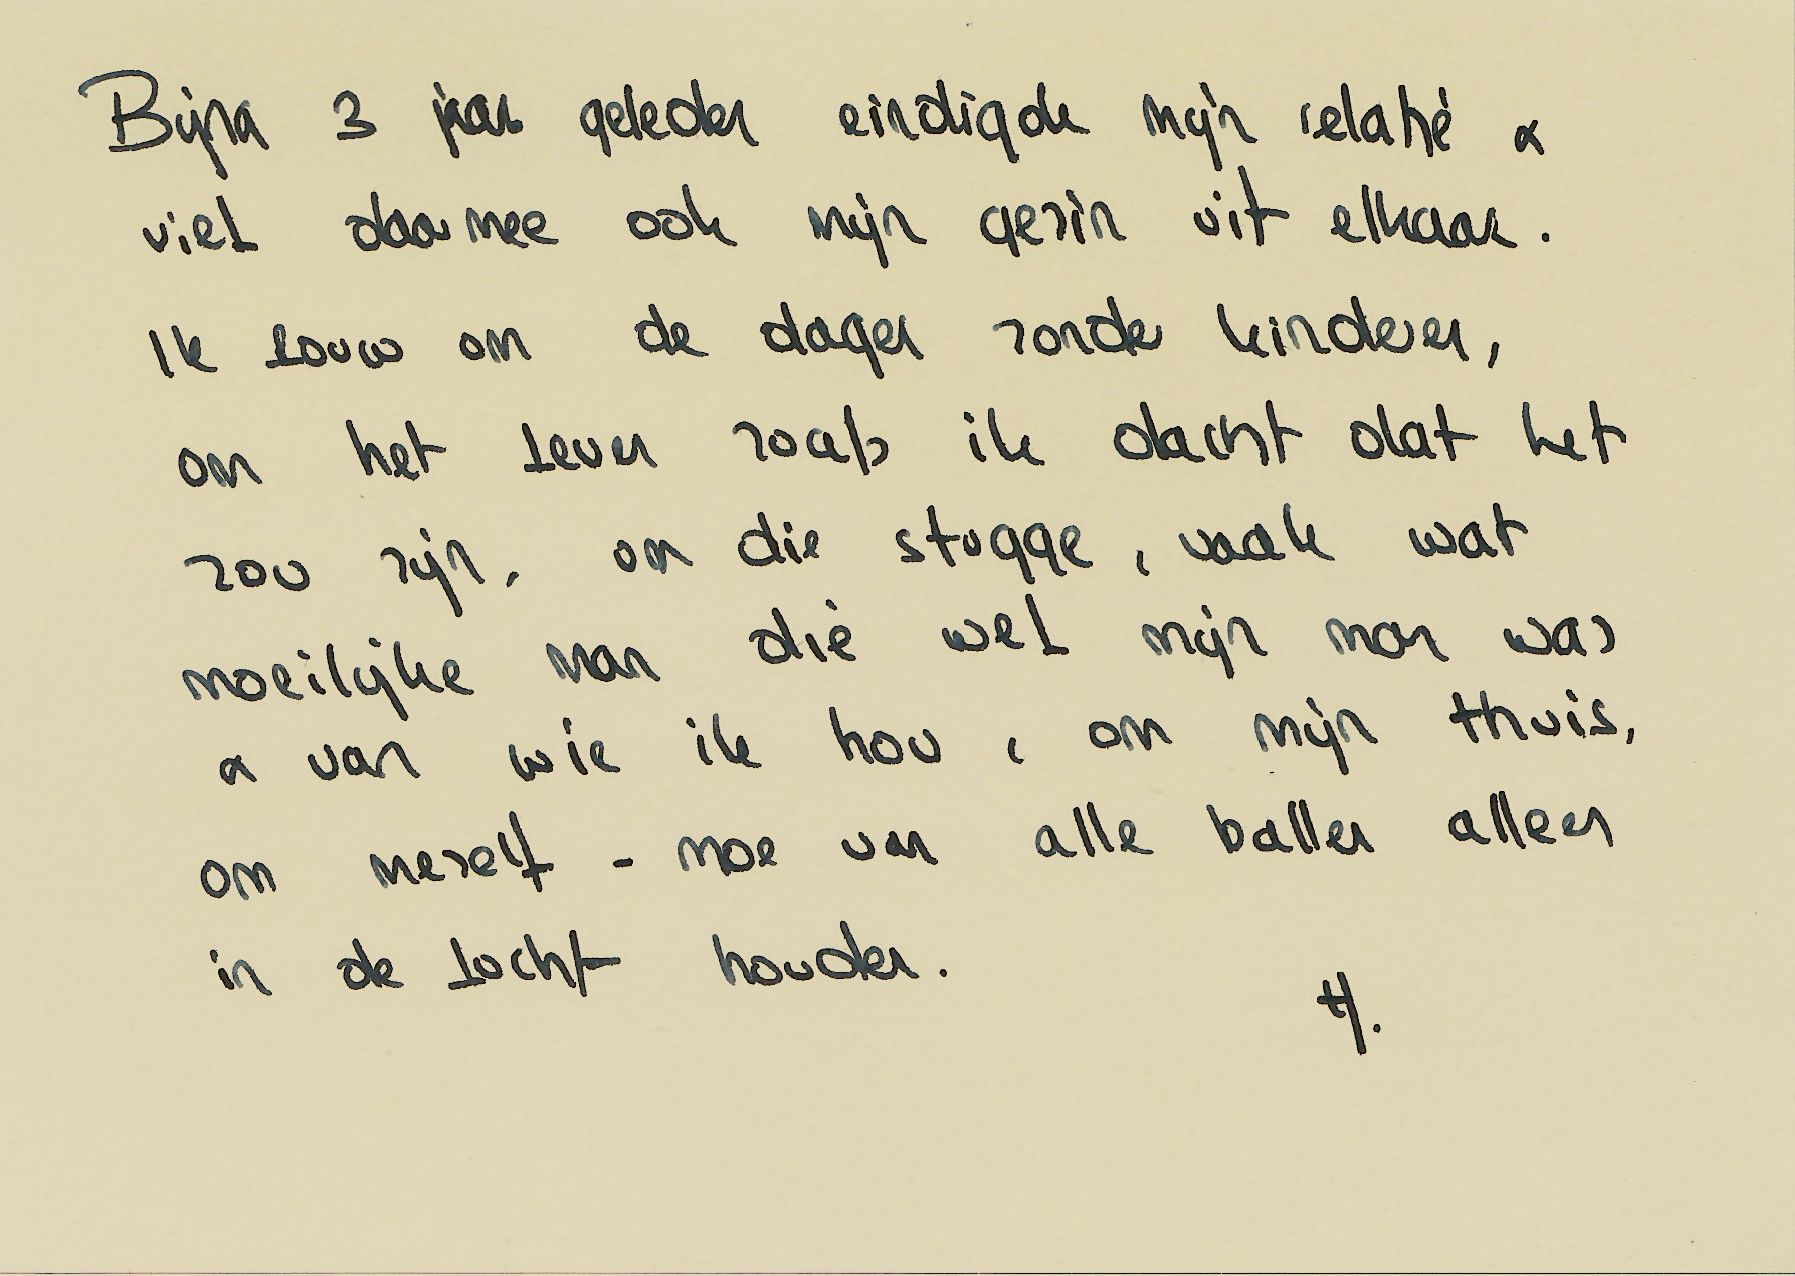 Bijna 3 jaar geleden eindigde mijn relatie &
viel daarmee ook mijn gezin uit elkaar.
Ik rouw om de dagen zonder kinderen,
om het leven zoals ik dacht dat het
zou zijn, om die stugge, vaak wat
moeilijke man die wel mijn man was
& van wie ik hou, om mijn thuis,
om mezelf - moe van alle ballen alleen
in de lucht houden.
H.